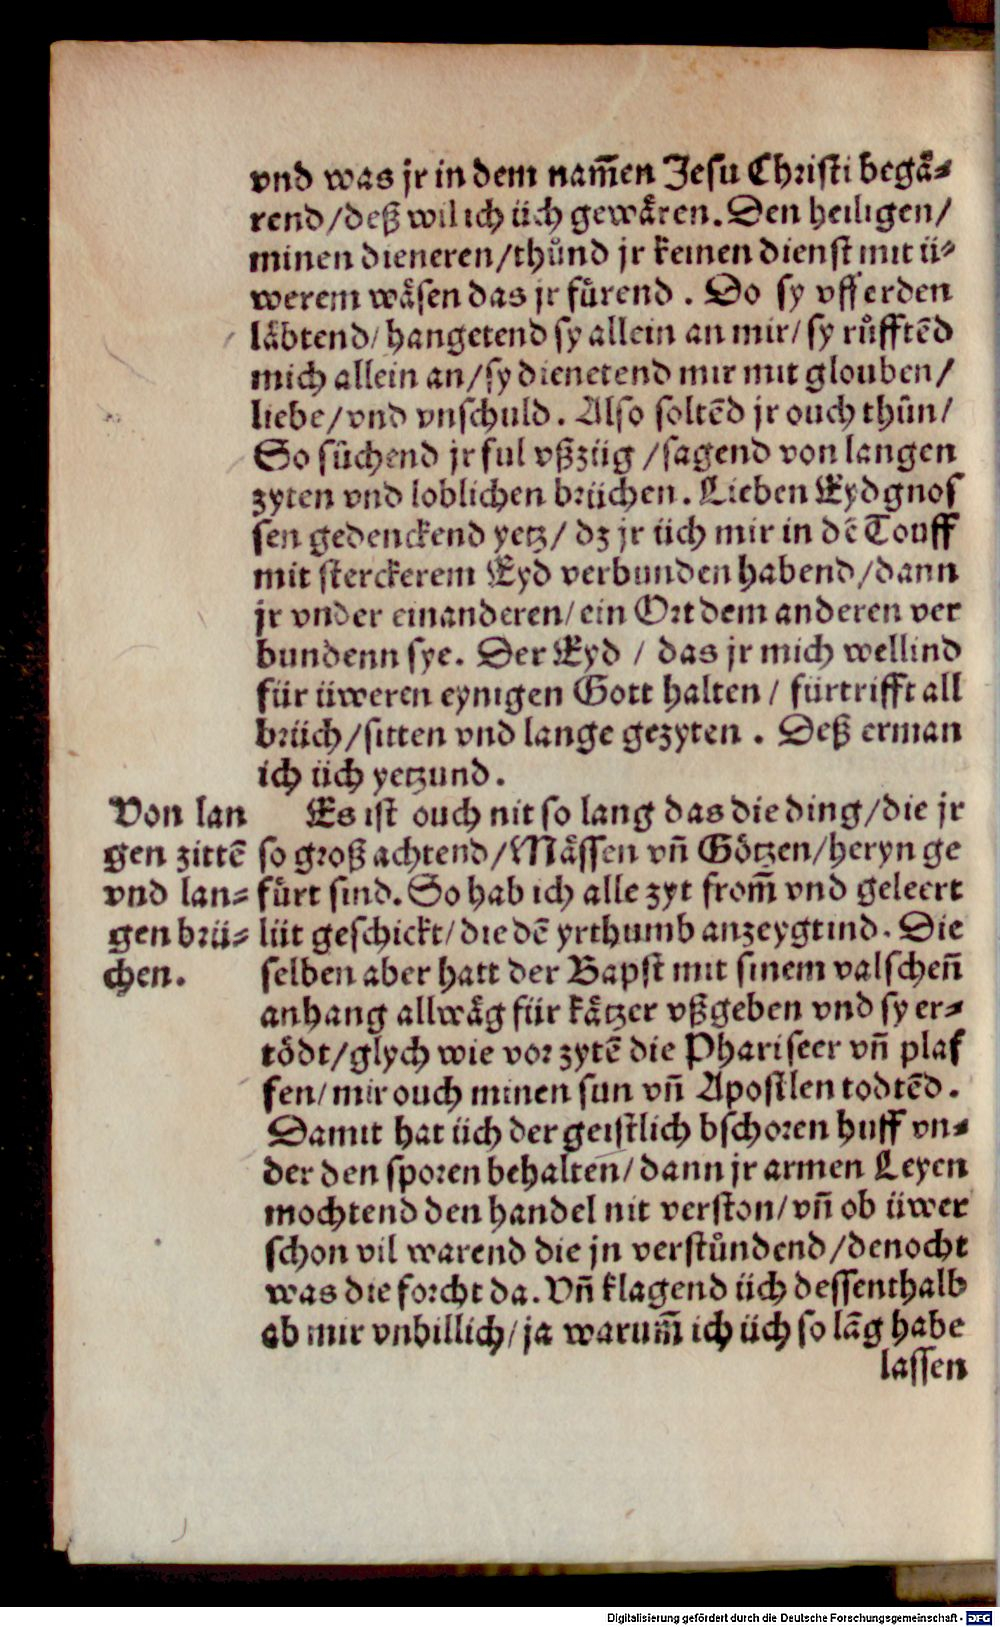 vnd was jr in dem nam̃en Jesu Christi begaͤ⸗
rend/deß wil ich üch gewaͤren. Den heiligen/
minen dieneren/thuͦnd jr keinen dienst mit ü⸗
werem waͤsen das jr fuͤrend . Do sy vff erden
laͤbtend/hangetend sy allein an mir/sy ruͦfftẽd
mich allein an/sy dienetend mir mit glouben/
liebe/vnd vnschuld. Also soltẽd jr ouch thuͦn/
So suͦchend jr ful vßzüg /sagend von langen
zyten vnd loblichen brüchen. Lieben Eydgnos
sen gedenckend yetz/ dz jr üch mir in dẽ Touff
mit sterckerem Eyd verbunden habend/dann
jr vnder einanderen/ein Ort dem anderen ver
bundenn sye. Der Eyd / das jr mich wellind
für üweren eynigen Gott halten / fürtrifft all
brüch/sitten vnd lange gezyten . Deß erman
ich üch yetzund.
Von lan
gen zittẽ
vnd lan⸗
gen brü⸗
chen.
Es ist ouch nit so lang das die ding/die jr
so groß achtend/Maͤssen vñ Goͤtzen/heryn ge
fuͤrt sind. So hab ich alle zyt from̃ vnd geleert
lüt geschickt/die dẽ yrthumb anzeygtind. Die
selben aber hatt der Bapst mit sinem valscheñ
anhang allwaͤg für kaͤtzer vßgeben vnd sy er⸗
toͤdt/glych wie vor zytẽ die Phariseer vñ plaf
fen/mir ouch minen sun vñ Apostlen todtẽd.
Damit hat üch der geistlich bschoren huff vn⸗
der den sporen behalten/dann jr armen Leyen
mochtend den handel nit verston/vñ ob üwer
schon vil warend die jn verstuͦndend/denocht
was die forcht da. Vñ klagend üch dessenthalb
ab mir vnbillich/ja warum̃ ich üch so lãg habe
lassen
Digitalisierung gefördert durch die Deutsche Forschungsgemeinschaft - DFG